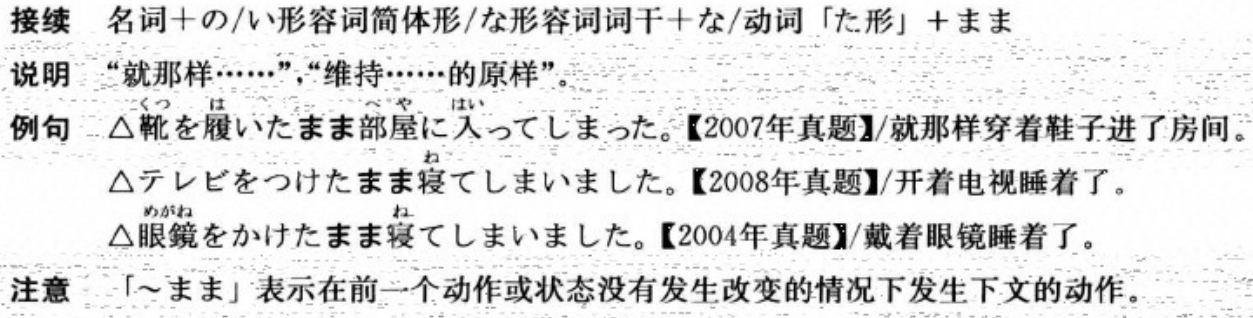 接续 名词＋の/い形容词简体形/な形容词词干＋な/动词「た形」＋まま
说明 “就那样……”,“维持……的原样”。
くつ は へや はい
例句 △靴を履いたまま部屋に入ってしまった。【2007年真题】/就那样穿着鞋子进了房间。
ね
△テレビをつけたまま寝てしまいました。【2008年真题】/开着电视睡着了。
めがね ね
△眼鏡をかけたまま寝てしまいました。【2004年真题】/戴着眼镜睡着了。
注意 「～まま」表示在前一个动作或状态没有发生改变的情况下发生下文的动作。